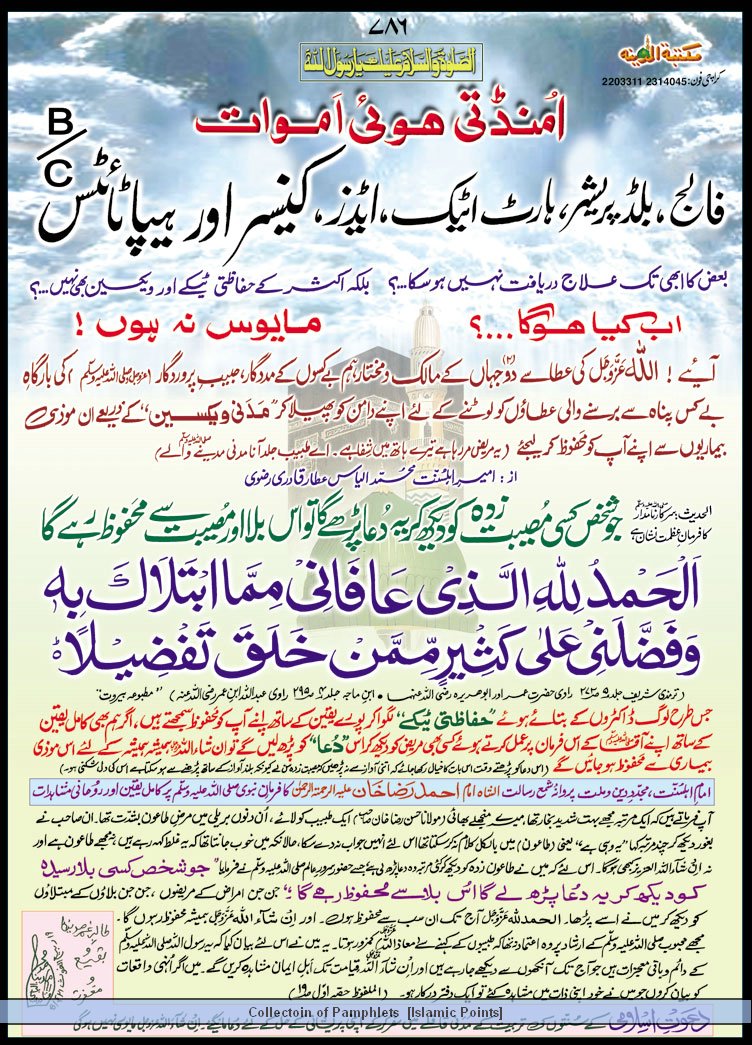 ۷۸۶
الصلوٰۃ والسلام علیک یارسول اللہ
مکتبۃ المدینہ
کراچی فون: 2314045 2203311
اُمنڈتی ہوئی اَموات
فالج، بلڈ پریشر، ہارٹ اٹیک، ایڈز، کینسر اور ہیپاٹائٹس B/C
بعض کا ابھی تک علاج دریافت نہیں ہوسکا...؟ بلکہ اکثر کے حفاظتی ٹیکے اور ویکسین بھی نہیں...؟
اب کیا ہوگا...؟ مایوس نہ ہوں !
آیئے ! اللہ عَزَّوَجَل کی عطا سے دو جہاں کے مالک و مختار، ہم بے کسوں کے مددگار، حبیبِ پروردگار (عزوجل و صلی اللہ علیہ وسلم) کی بارگاہِ
بے کس پناہ سے برسنے والی عطاؤں کو لوٹنے کے لئے اپنے دامن کو پھیلا کر ”مَدَنی ویکسین“ کے ذریعے ان موذی
بیماریوں سے اپنے آپ کو محفوظ کر لیجئے (یہ مریض مر رہا ہے تیرے ہاتھ میں شِفا ہے۔ اے طبیب جلد آنا مدنی مدینے والے)
از : امیرِ اہلسنّت محمد الیاس عطار قادری رضوی
الحدیث: سرکارِ نامدار صلی اللہ علیہ وسلم کا فرمانِ عظمت نشان ہے
جو شخص کسی مصیبت زدہ کو دیکھ کر یہ دُعا پڑھے گا تو اس بلا اور مُصیبت سے محفوظ رہے گا
اَلْحَمْدُ لِلّٰهِ الَّذِیْ عَافَانِیْ مِمَّا ابْتَلَاكَ بِهٖ
وَفَضَّلَنِیْ عَلٰی كَثِیْرٍ مِّمَّنْ خَلَقَ تَفْضِیْلًا
(ترمذی شریف جلد ۵ ص۲۷۳ راوی حضرت عمر اور ابوھریرہ رضی اللہ عنہما • ابنِ ماجہ جلد ۴ ص۲۹۵ راوی عبداللہ ابن عمر رضی اللہ عنہ) ”مطبوعہ بیروت“
جس طرح لوگ ڈاکٹروں کے بتائے ہوئے ”حفاظتی ٹیکے“ لگوا کر پورے یقین کے ساتھ اپنے آپ کو محفوظ سمجھتے ہیں، اگر ہم بھی کامل یقین
کے ساتھ اپنے آقا صلی اللہ علیہ وسلم کے اس فرمان پر عمل کرتے ہوئے کسی بھی مریض کو دیکھ کر اس ”دُعا“ کو پڑھ لیں گے تو ان شاء اللہ ہمیشہ ہمیشہ کے لئے اس موذی
بیماری سے محفوظ ہو جائیں گے (اس دعا کو پڑھتے وقت اس بات کا خیال رکھا جائے کہ اتنی آواز سے نہ پڑھیں کہ مصیبت زدہ سن لے کیونکہ بلند آواز کے ساتھ پڑھنے سے ہو سکتا ہے اس کی دل شکنی ہو۔)
امامِ اہلسنّت، مجددِ دین و ملت پروانۂ شمعِ رسالت الشاہ امام احمد رضا خان علیہ الرحمۃ الرحمٰن کا فرمانِ نبوی صلی اللہ علیہ وسلم پر کامل یقین اور روحانی مشاہدات
آپ فرماتے ہیں کہ ایک مرتبہ مجھے بہت شدید بخار تھا، میرے منجھلے بھائی (مولانا حسن رضا خان) ایک طبیب کو لائے، اُن دنوں بریلی میں مرض طاعون بشدّت تھا۔ ان صاحب نے
بغور دیکھ کر چند مرتبہ کہا ”یہ وہی ہے“ یعنی (طاعون) میں بالکل کلام نہ کر سکتا تھا اس لئے انہیں جواب نہ دے سکا، مالانکہ میں خوب جانتا تھا کہ یہ غلط کہہ رہے ہیں نہ مجھے طاعون ہے اور
نہ اِن شآءَ اللہ العزیز کبھی ہوگا۔ اس لئے کہ میں نے طاعون زدہ کو دیکھ کر کئی مرتبہ وہ دعا پڑھ لی ہے جسے حضور سرورِ عالم صلی اللہ علیہ وسلم نے فرمایا ”جو شخص کسی بلا رسیدہ
کو دیکھ کر یہ دُعا پڑھ لے گا اُس بلا سے محفوظ رہے گا :“ جن جن امراض کے مریضوں، جن جن بلاؤں کے مبتلاؤں
کو دیکھ کر میں نے اسے پڑھا۔ الحمد للہ عَزَّوَجَل آج تک ان سب سے محفوظ ہوں۔ اور اِن شآءَ اللہ عَزَّوَجَل ہمیشہ محفوظ رہوں گا۔
مجھے محبوب صلی اللہ علیہ وسلم کے ارشاد پر وہ اعتماد نہ تھا کہ طبیبوں کے کہنے سے معاذ اللہ کمزور ہوتا۔ یہ میں نے اس لئے بیان کیا کہ یہ رسول اللہ صلی اللہ علیہ وسلم
کے دائم و باقی معجزات ہیں جو آج تک آنکھوں سے دیکھے جا رہے ہیں اور اِن شآءَ اللہ قیامت تک اہلِ ایمان مشاہدہ کریں گے۔ میں اگر اُنہی واقعات
کو بیان کروں جو میں نے خود اپنی ذات میں مشاہدہ کئے تو ایک دفتر درکار ہو۔ (الملفوظ حصہ اول ص۱۹)
طالبِ غمِ مدینہ
و
بقیع
و
مغفرت
دعوتِ اسلامی کے سنتوں کی تربیت کے مدنی قافلے میں سفر
Collectoin of Pamphlets [Islamic Points]